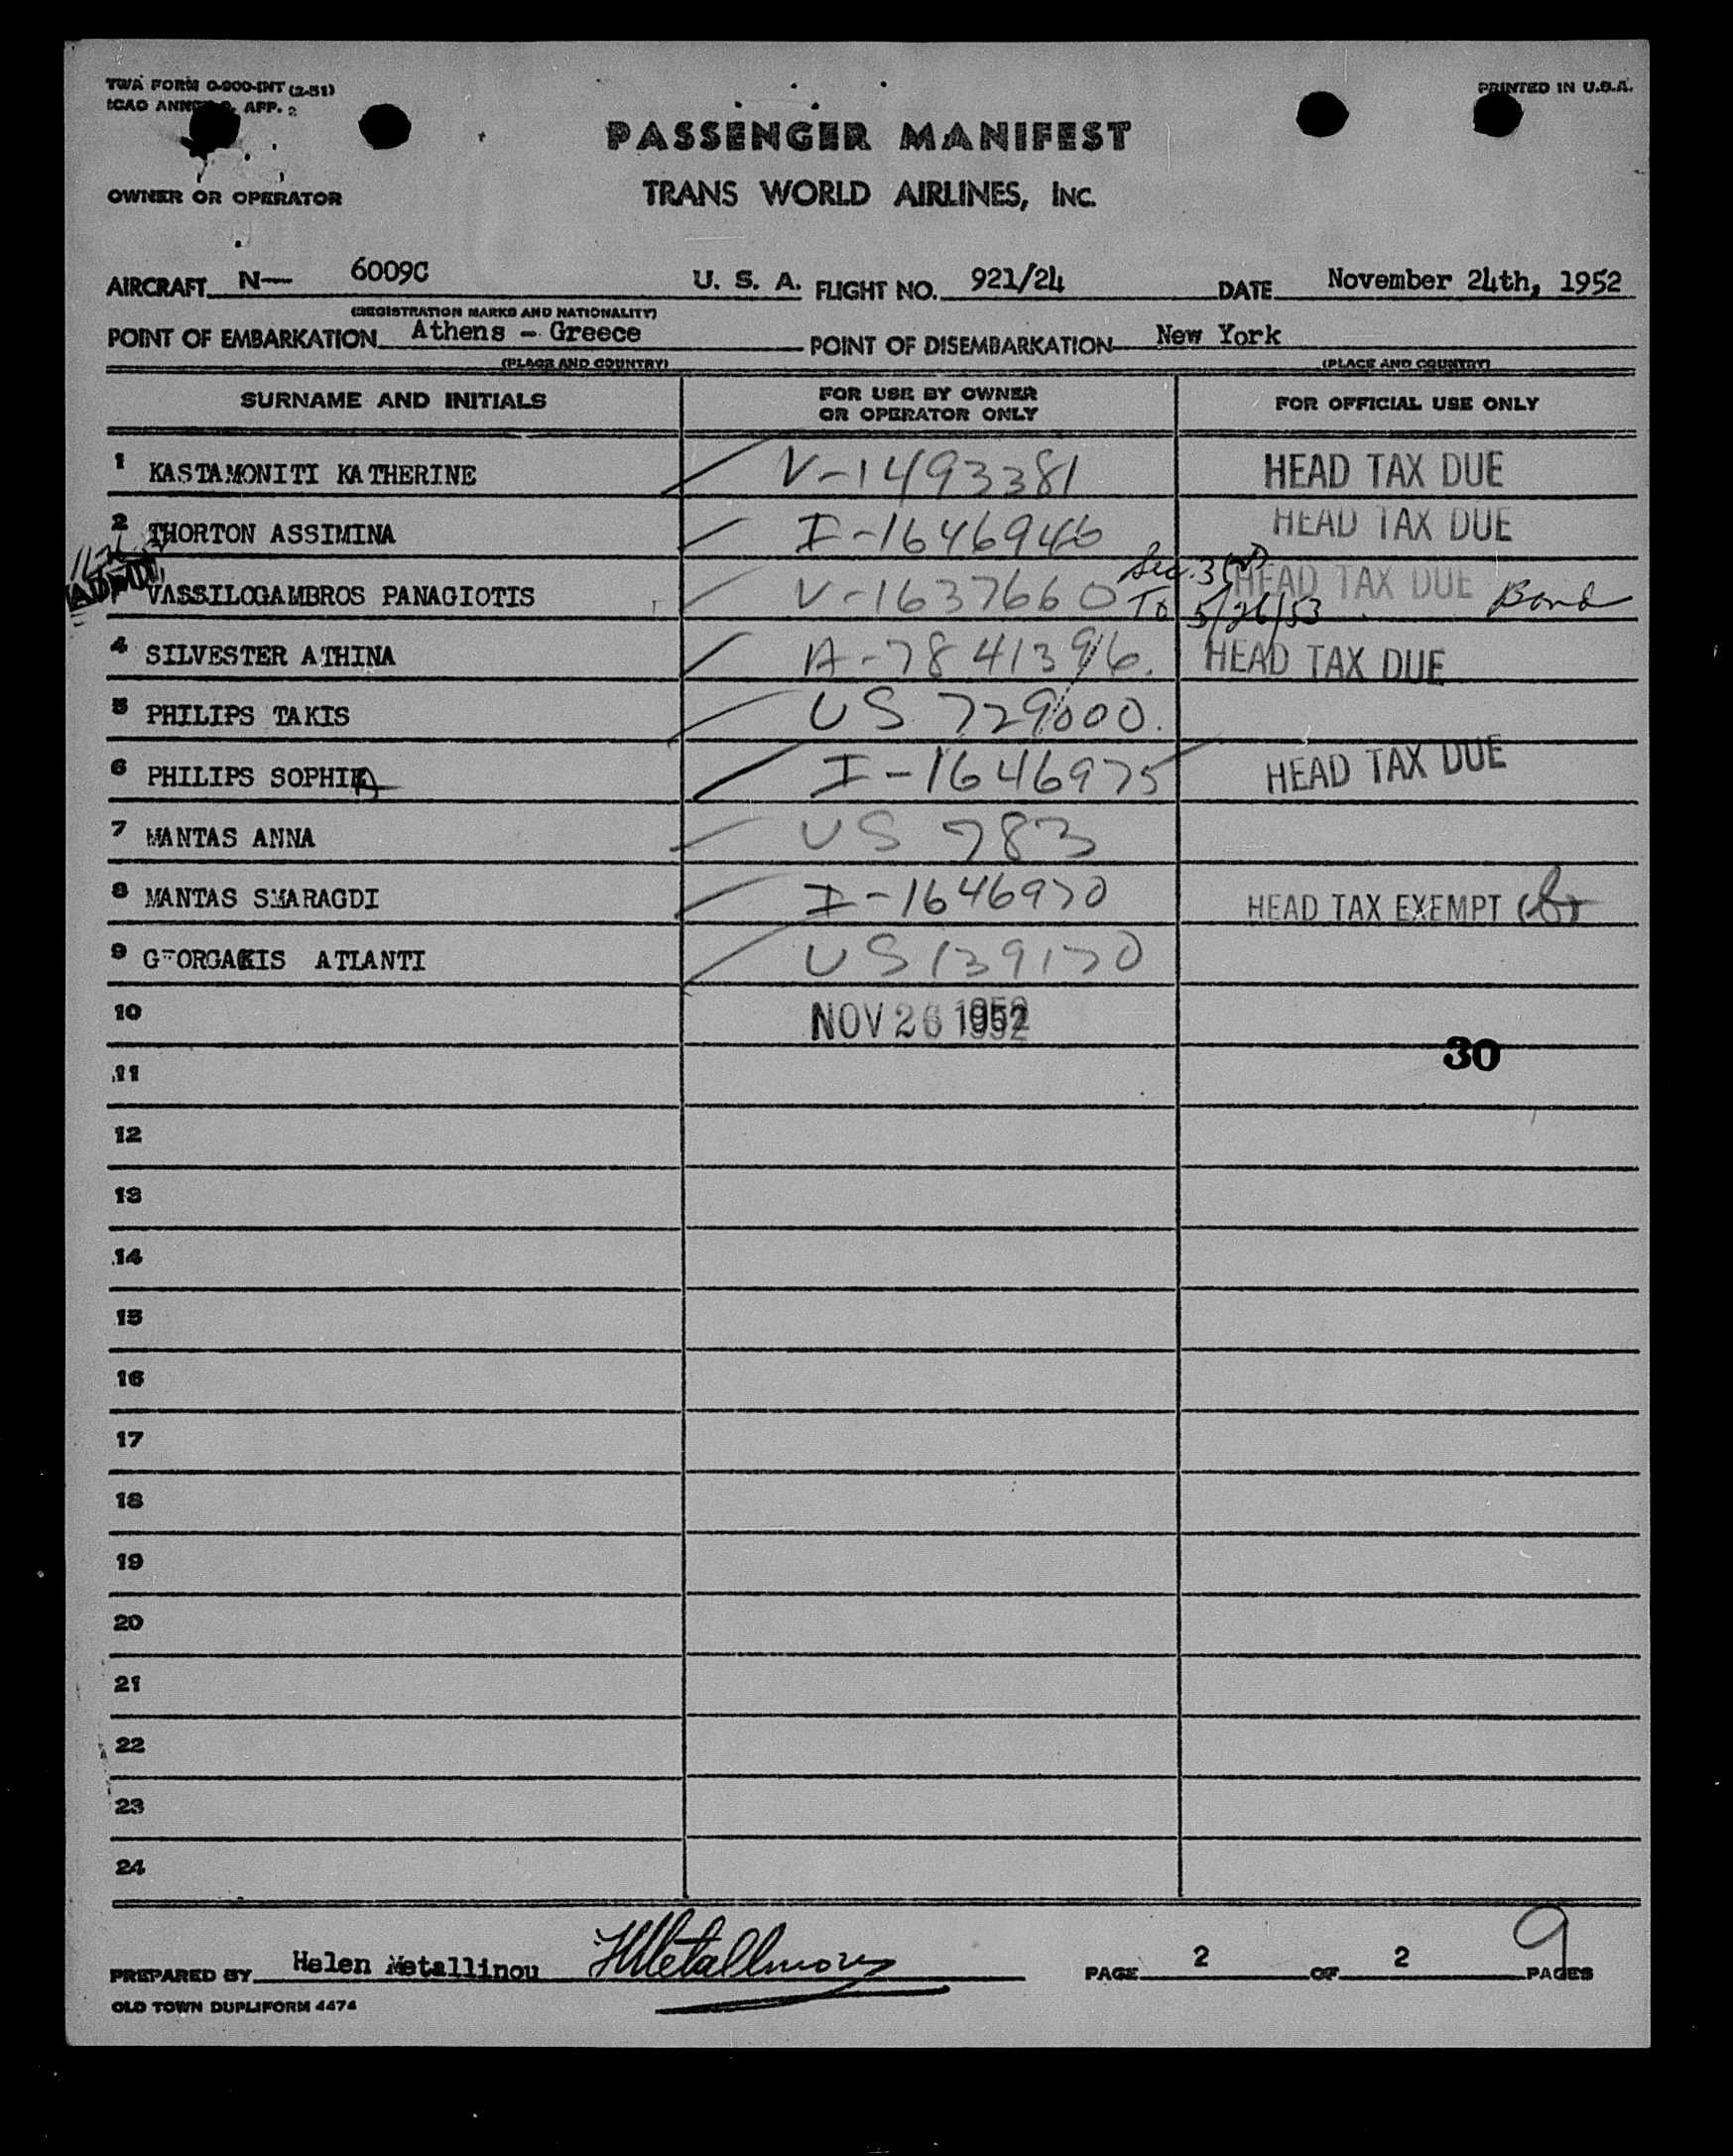 TWA FORM O-900-INT (2-51)
PRINTED IN U.S.A.
ICAO APP. 2
PASSENGER MANIFEST
OWNER OR OPERATOR
TRANS WORLD AIRLINES, INC.
AIRCRAFT N— 6009C U. S. A. FLIGHT NO. 921/24 DATE November 24th, 1952
(REGISTRATION MARKS AND NATIONALITY)
POINT OF EMBARKATION Athens - Greece POINT OF DISEMBARKATION New York
(PLACE AND COUNTRY) (PLACE AND COUNTRY)
SURNAME AND INITIALS FOR USE BY OWNER OR OPERATOR ONLY FOR OFFICIAL USE ONLY
1 KASTAMONITI KATHERINE V-1493381 HEAD TAX DUE
2 THORTON ASSIMINA I-1646946 HEAD TAX DUE
VASSILOGAMBROS PANAGIOTIS V-1637660 Sec. 3 HEAD TAX DUE Bond
To 5/26/53
4 SILVESTER ATHINA A-7841396. HEAD TAX DUE
5 PHILIPS TAKIS US 729000.
6 PHILIPS SOPHIA I-1646975 HEAD TAX DUE
7 MANTAS ANNA US 783
8 MANTAS SMARAGDI I-1646970 HEAD TAX EXEMPT
9 GEORGAKIS ATLANTI US 139170
10 NOV 26 1952
30
11
12
13
14
15
16
17
18
19
20
21
22
23
24
PREPARED BY Helen Metallinou HMetallinou PAGE 2 OF 2 PAGES 9
OLD TOWN DUPLIFORM 4474